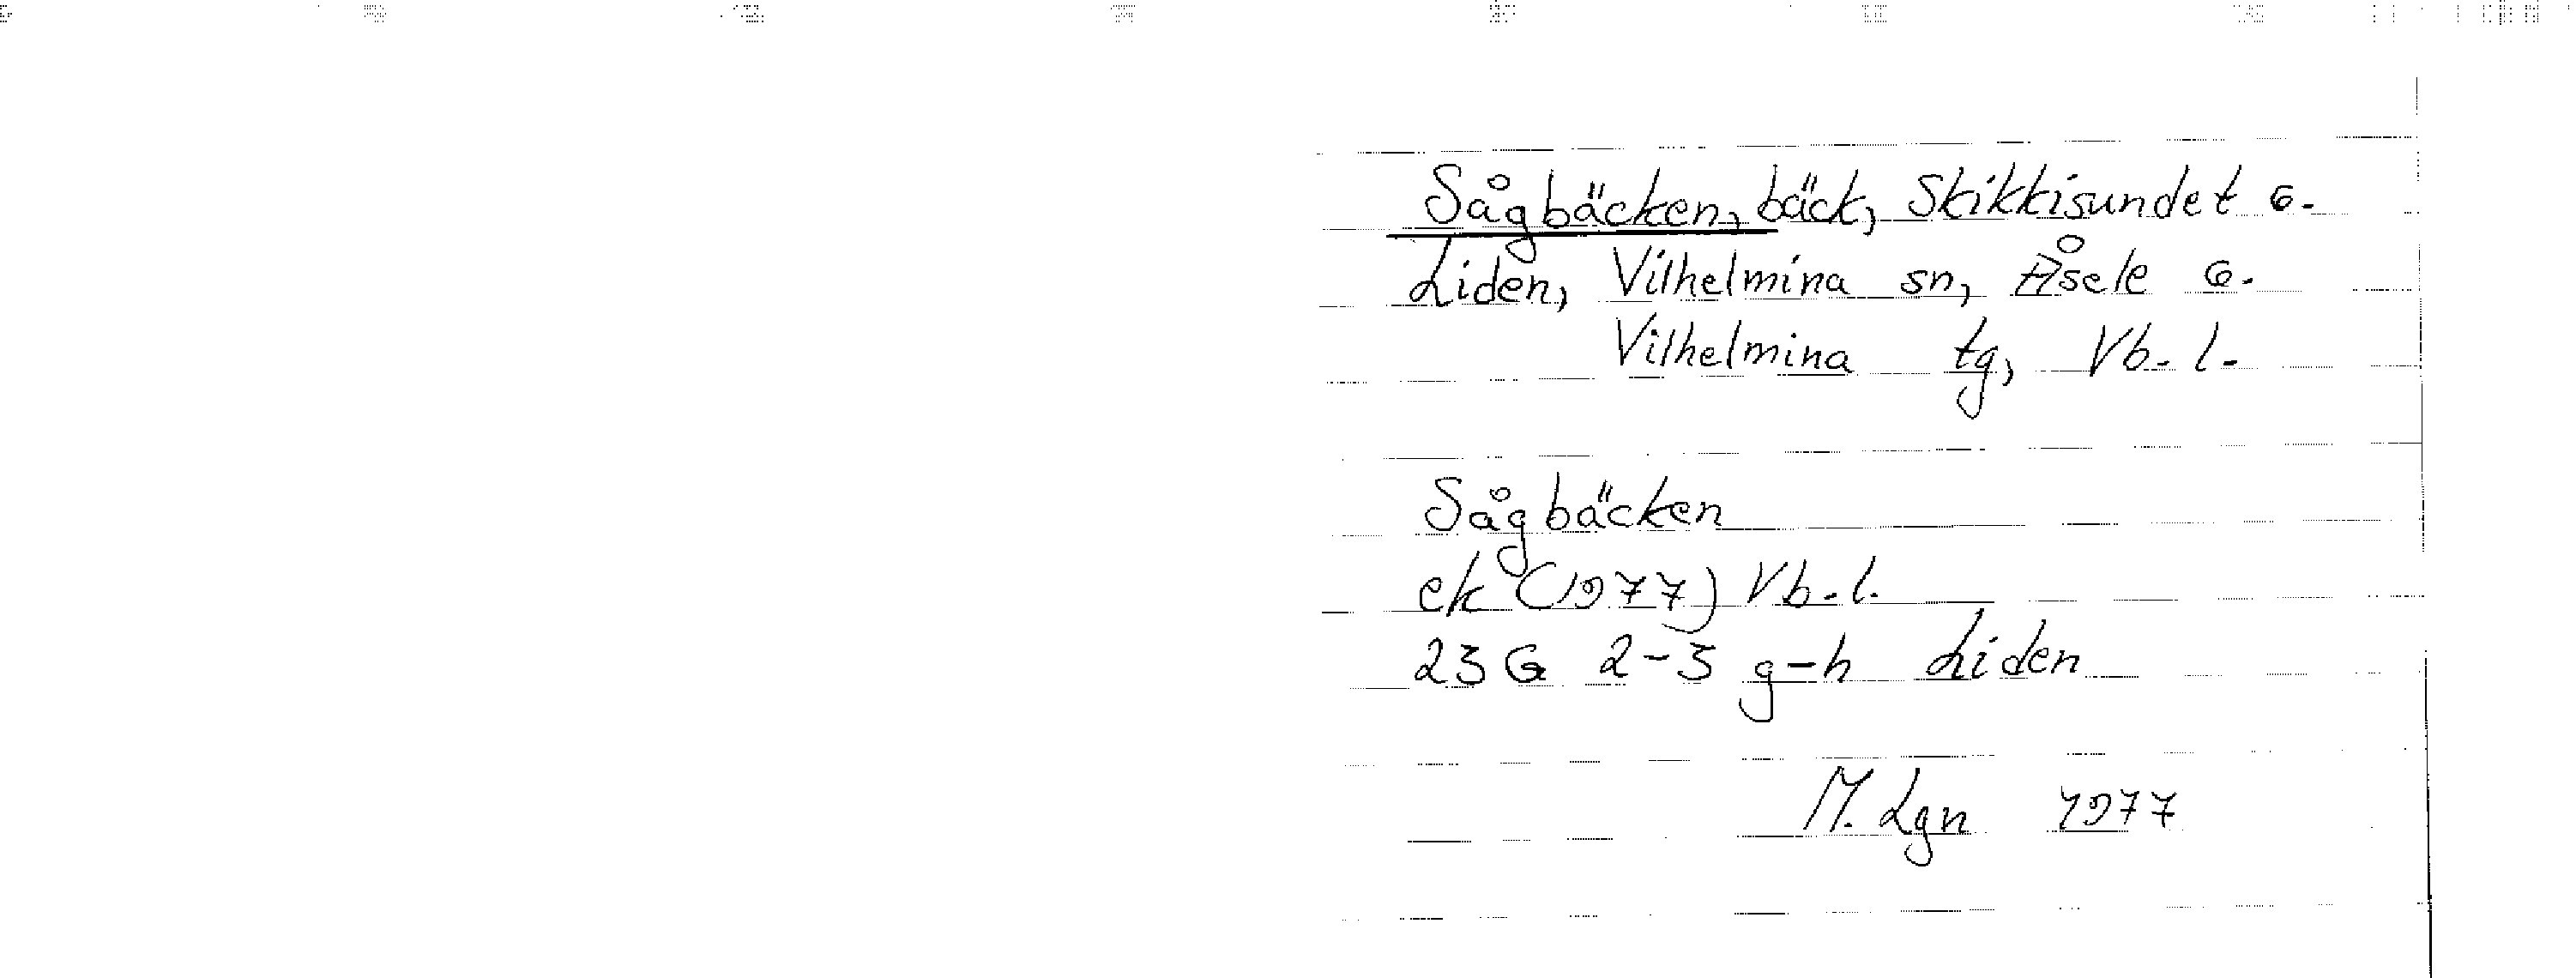 Sågbäcken, bäck, Skikkisundet o.
Liden, Vilhelmina sn, Åsele o.
Vilhelmina tg, Vb. l.
Sågbäcken
ek (1977) Vb. l.
23 G 2-3 g-h Liden
M. Lgn 1977